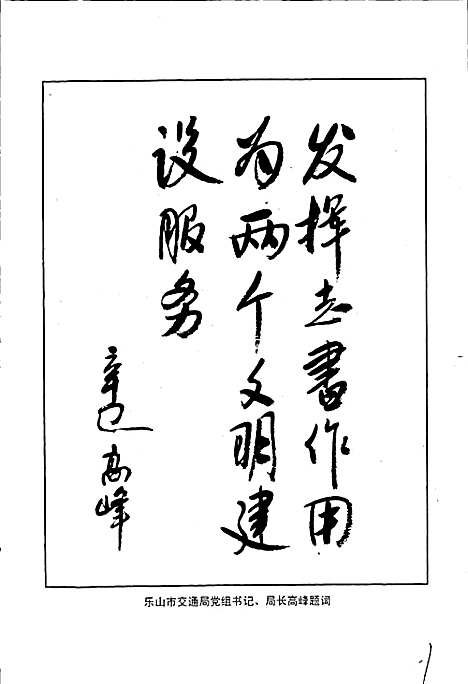 发挥志書作用
为两个文明建
设服务
辛巳高峰
乐山市交通局党组书记、局长高峰题词